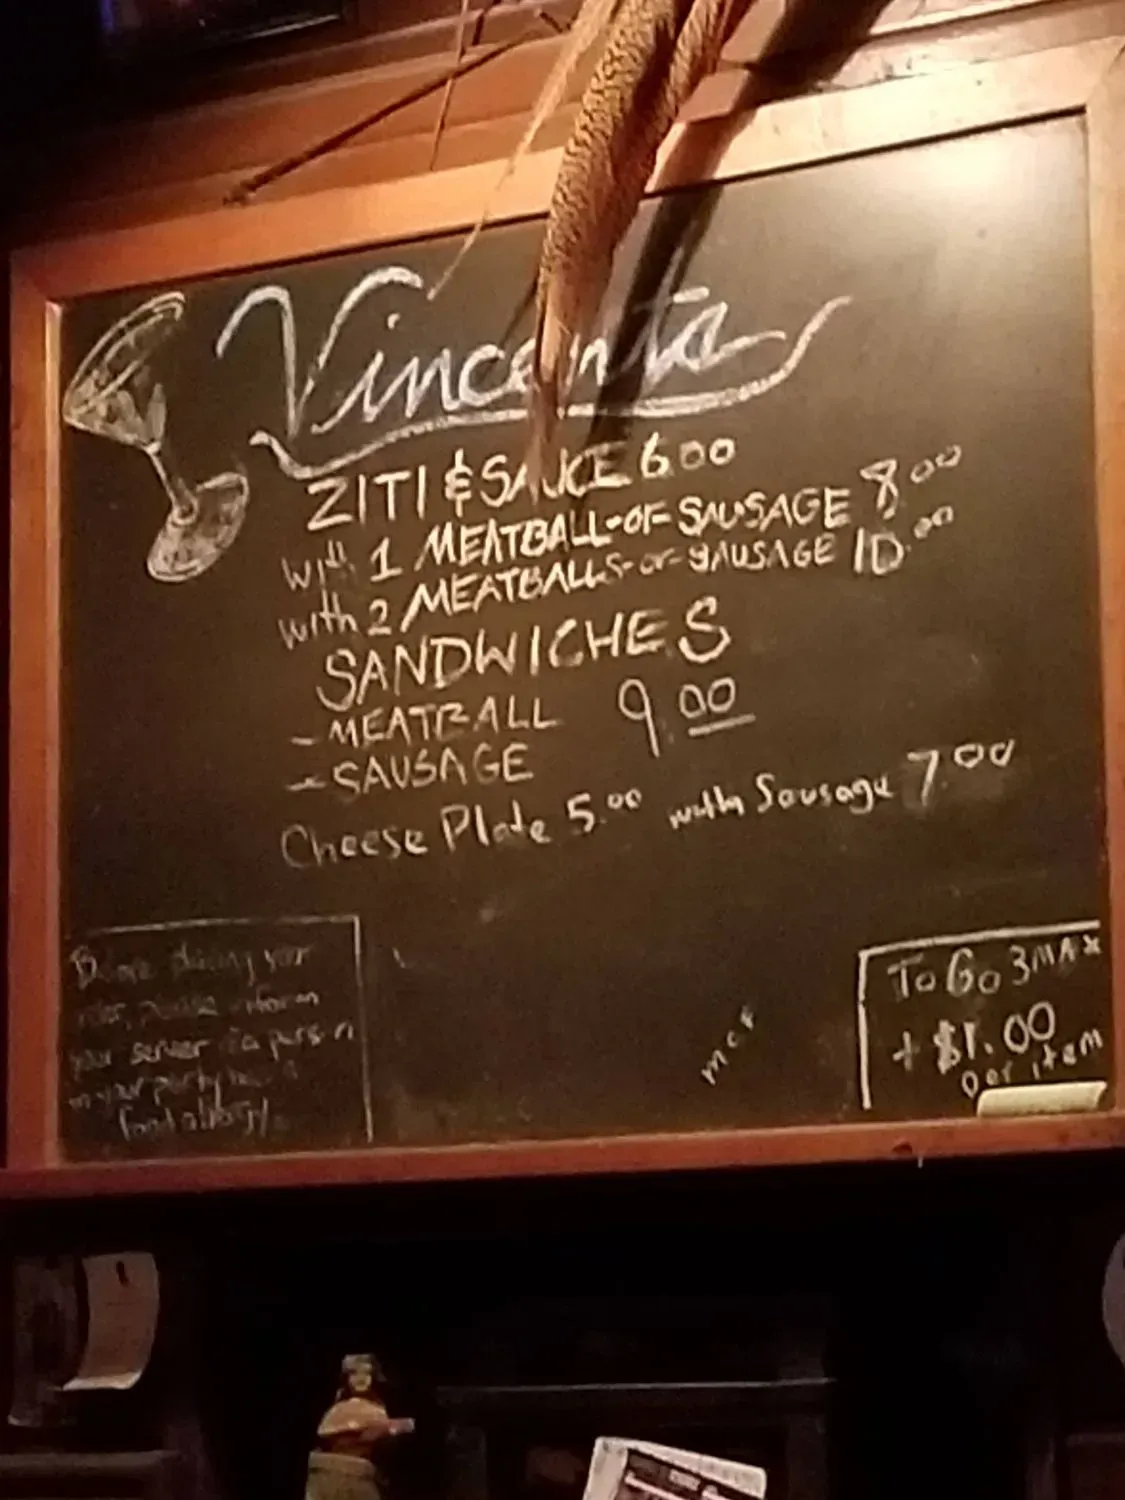 Vincent's
ZITI & SAUCE 6.00
with 1 MEATBALL-or-SAUSAGE 8.00
with 2 MEATBALLS-or-SAUSAGE 10.00
SANDWICHES
- MEATBALL 9.00
- SAUSAGE
Cheese Plate 5.00 with Sausage 7.00
Before placing your
order, please inform
your server if a person
in your party has a
food allergy.
MCF
To Go 3 MAX
+ $1.00
per item